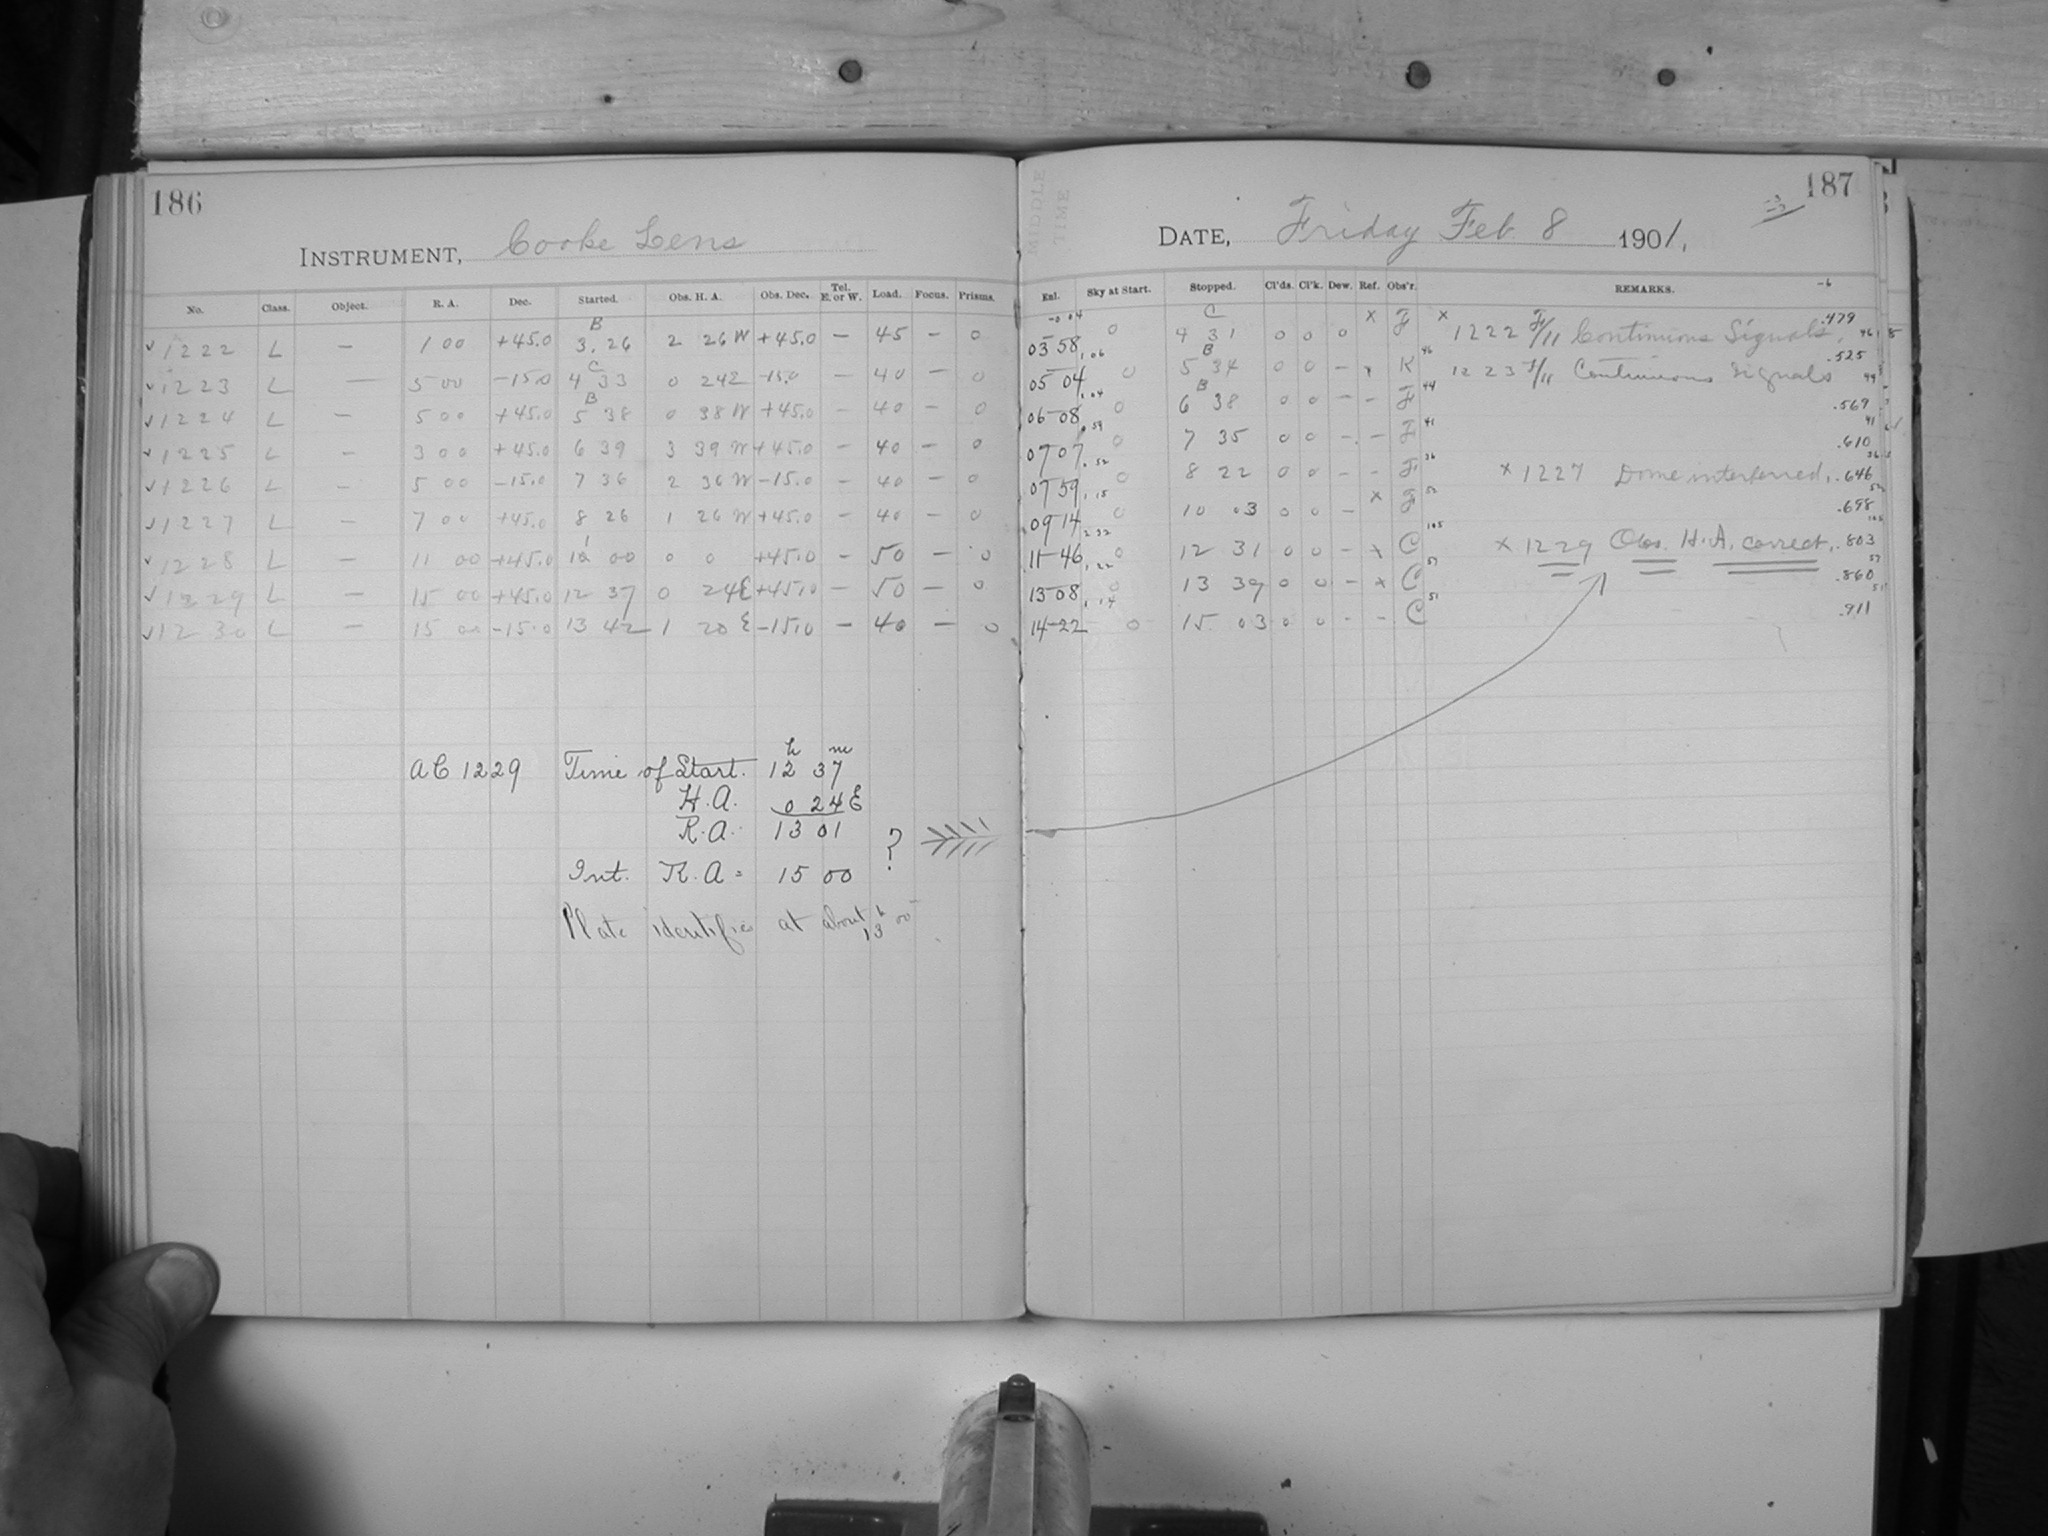 186
INSTRUMENT, Cooke Lens
No. Class. Object. R. A. Dec. Started. Obs. H. A. Obs. Dec. Tel. E. or W. Load. Focus. Prisms.
B
✓ 1222 L — 1 00 +45.0 3. 26 2 26 W +45.0 — 45 — 0
C
✓ 1223 L — 5 00 -15.0 4 33 0 24E -15.0 — 40 — 0
B
✓ 1224 L — 5 00 +45.0 5 38 0 38 W +45.0 — 40 — 0
✓ 1225 L — 3 00 +45.0 6 39 3 39 W +45.0 — 40 — 0
✓ 1226 L — 5 00 -15.0 7 36 2 36 W -15.0 — 40 — 0
✓ 1227 L — 7 00 +45.0 8 26 1 26 W +45.0 — 40 — 0
✓ 1228 L — 11 00 +45.0 00 0 0 +45.0 — 50 — 0
✓ 1229 L — 15 00 +45.0 12 37 0 24E +45.0 — 50 — 0
✓ 1230 L — 15 00 -15.0 13 42 1 20 E -15.0 — 40 — 0
AC 1229 Time of Start. 12 h 37 m
H. A. 0 24 E
R. A. 13 01
?
Int. R. A = 15 00
Plate identifies at about 13 h 00
187
MIDDLE TIME
DATE, Friday Feb 8 1901.
Exl. Sky at Start. Stopped. Cl'ds. Cl'k. Dew. Ref. Obs'r. REMARKS.
-6
-0 04 C x x .479
03 58 0 4 31 0 0 0 F 1222 F/11 Continuous Signals, 46
.06 B 46 .525
05 04 0 5 34 0 0 — x K 1223 F/11 Continuous Signals 44
.04 B 44
06 08 0 6 38 0 0 — — F .569
.59 41 41
07 07 0 7 35 0 0 — — F .610
.52 36 36
07 59 0 8 22 0 0 — — F x 1227 Dome interferred, .646
.15 x 52 52
09 14 0 10 03 0 0 — F .698
2 32 105 105
11 46 0 12 31 0 0 — x C x 1229 Obs. H. A. correct, .803
.22 57 57
13 08 0 13 39 0 0 — x C .860
.14 51 51
14 22 0 15 03 0 0 — — C .911